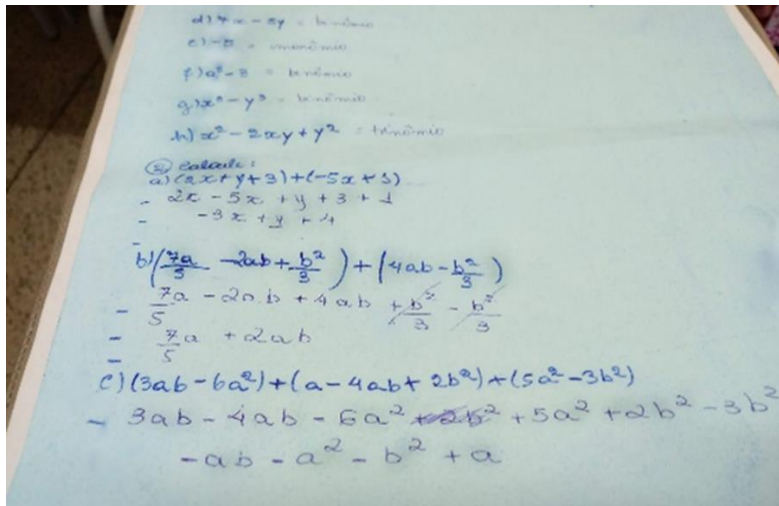 d) 7x - 5y = binômio
e) -8 = monômio
f) a³ - 8 = binômio
g) x³ - y³ = binômio
h) x² - 2xy + y² = trinômio
② Calcule:
a) (2x + y + 3) + (-5x + 1)
- 2x - 5x + y + 3 + 1
- -3x + y + 4
-
b) (7a/5 - 2ab + b²/3) + (4ab - b²/3)
- 7a/5 - 2ab + 4ab + b²/3 - b²/3
- 7/5 a + 2ab
-
c) (3ab - 6a²) + (a - 4ab + 2b²) + (5a² - 3b²)
- 3ab - 4ab - 6a² + 5a² + 2b² - 3b²
-ab - a² - b² + a